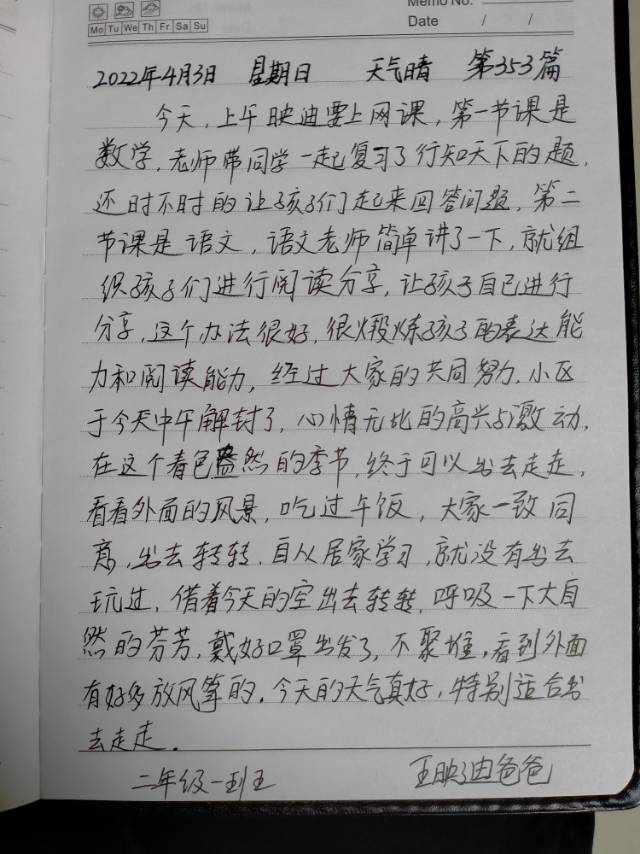 Memo No.
Mo Tu We Th Fr Sa Su
Date / /
2022年4月3日 星期日 天气晴 第353篇
今天,上午映迪要上网课,第一节课是
数学,老师带同学一起复习了行知天下的题,
还时不时的让孩子们起来回答问题,第二
节课是语文,语文老师简单讲了一下,就组
织孩子们进行阅读分享,让孩子自己进行
分享,这个办法很好,很煅炼孩子的表达能
力和阅读能力,经过大家的共同努力,小区
于今天中午解封了,心情无比的高兴与激动,
在这个春色盎然的季节,终于可以出去走走,
看看外面的风景,吃过午饭,大家一致同
意,出去转转,自从居家学习,就没有出去
玩过,借着今天的空出去转转,呼吸一下大自
然的芬芳,戴好口罩出发了,不聚堆,看到外面
有好多放风筝的,今天的天气真好,特别适合出
去走走.
二年级一班王 王映迪爸爸